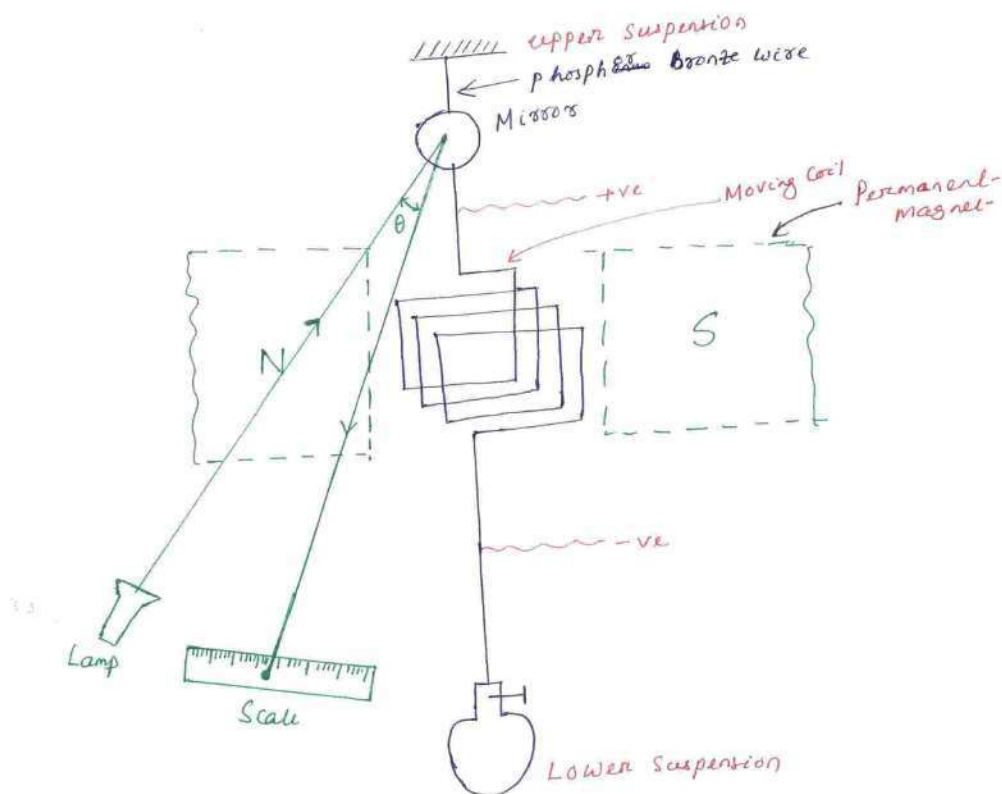 upper suspension
phosphor Bronze wire
Mirror
+ve
Moving Coil
Permanent-
magnet-
θ
N
S
-ve
Lamp
Scale
Lower suspension